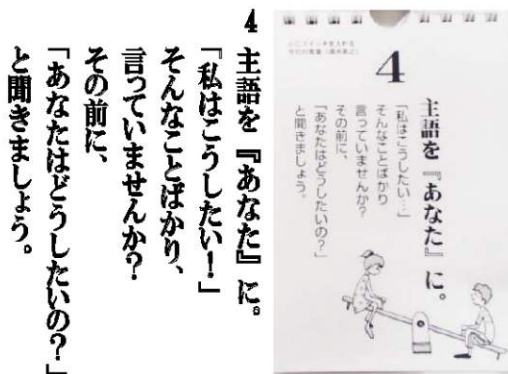 4 主語を『あなた』に。
「私はこうしたい！」
そんなことばかり、
言っていませんか？
その前に、
「あなたはどうしたいの？」
と聞きましょう。
4
主語を『あなた』に。
「私はこうしたい！」
そんなことばかり
言っていませんか？
その前に、
「あなたはどうしたいの？」
と聞きましょう。